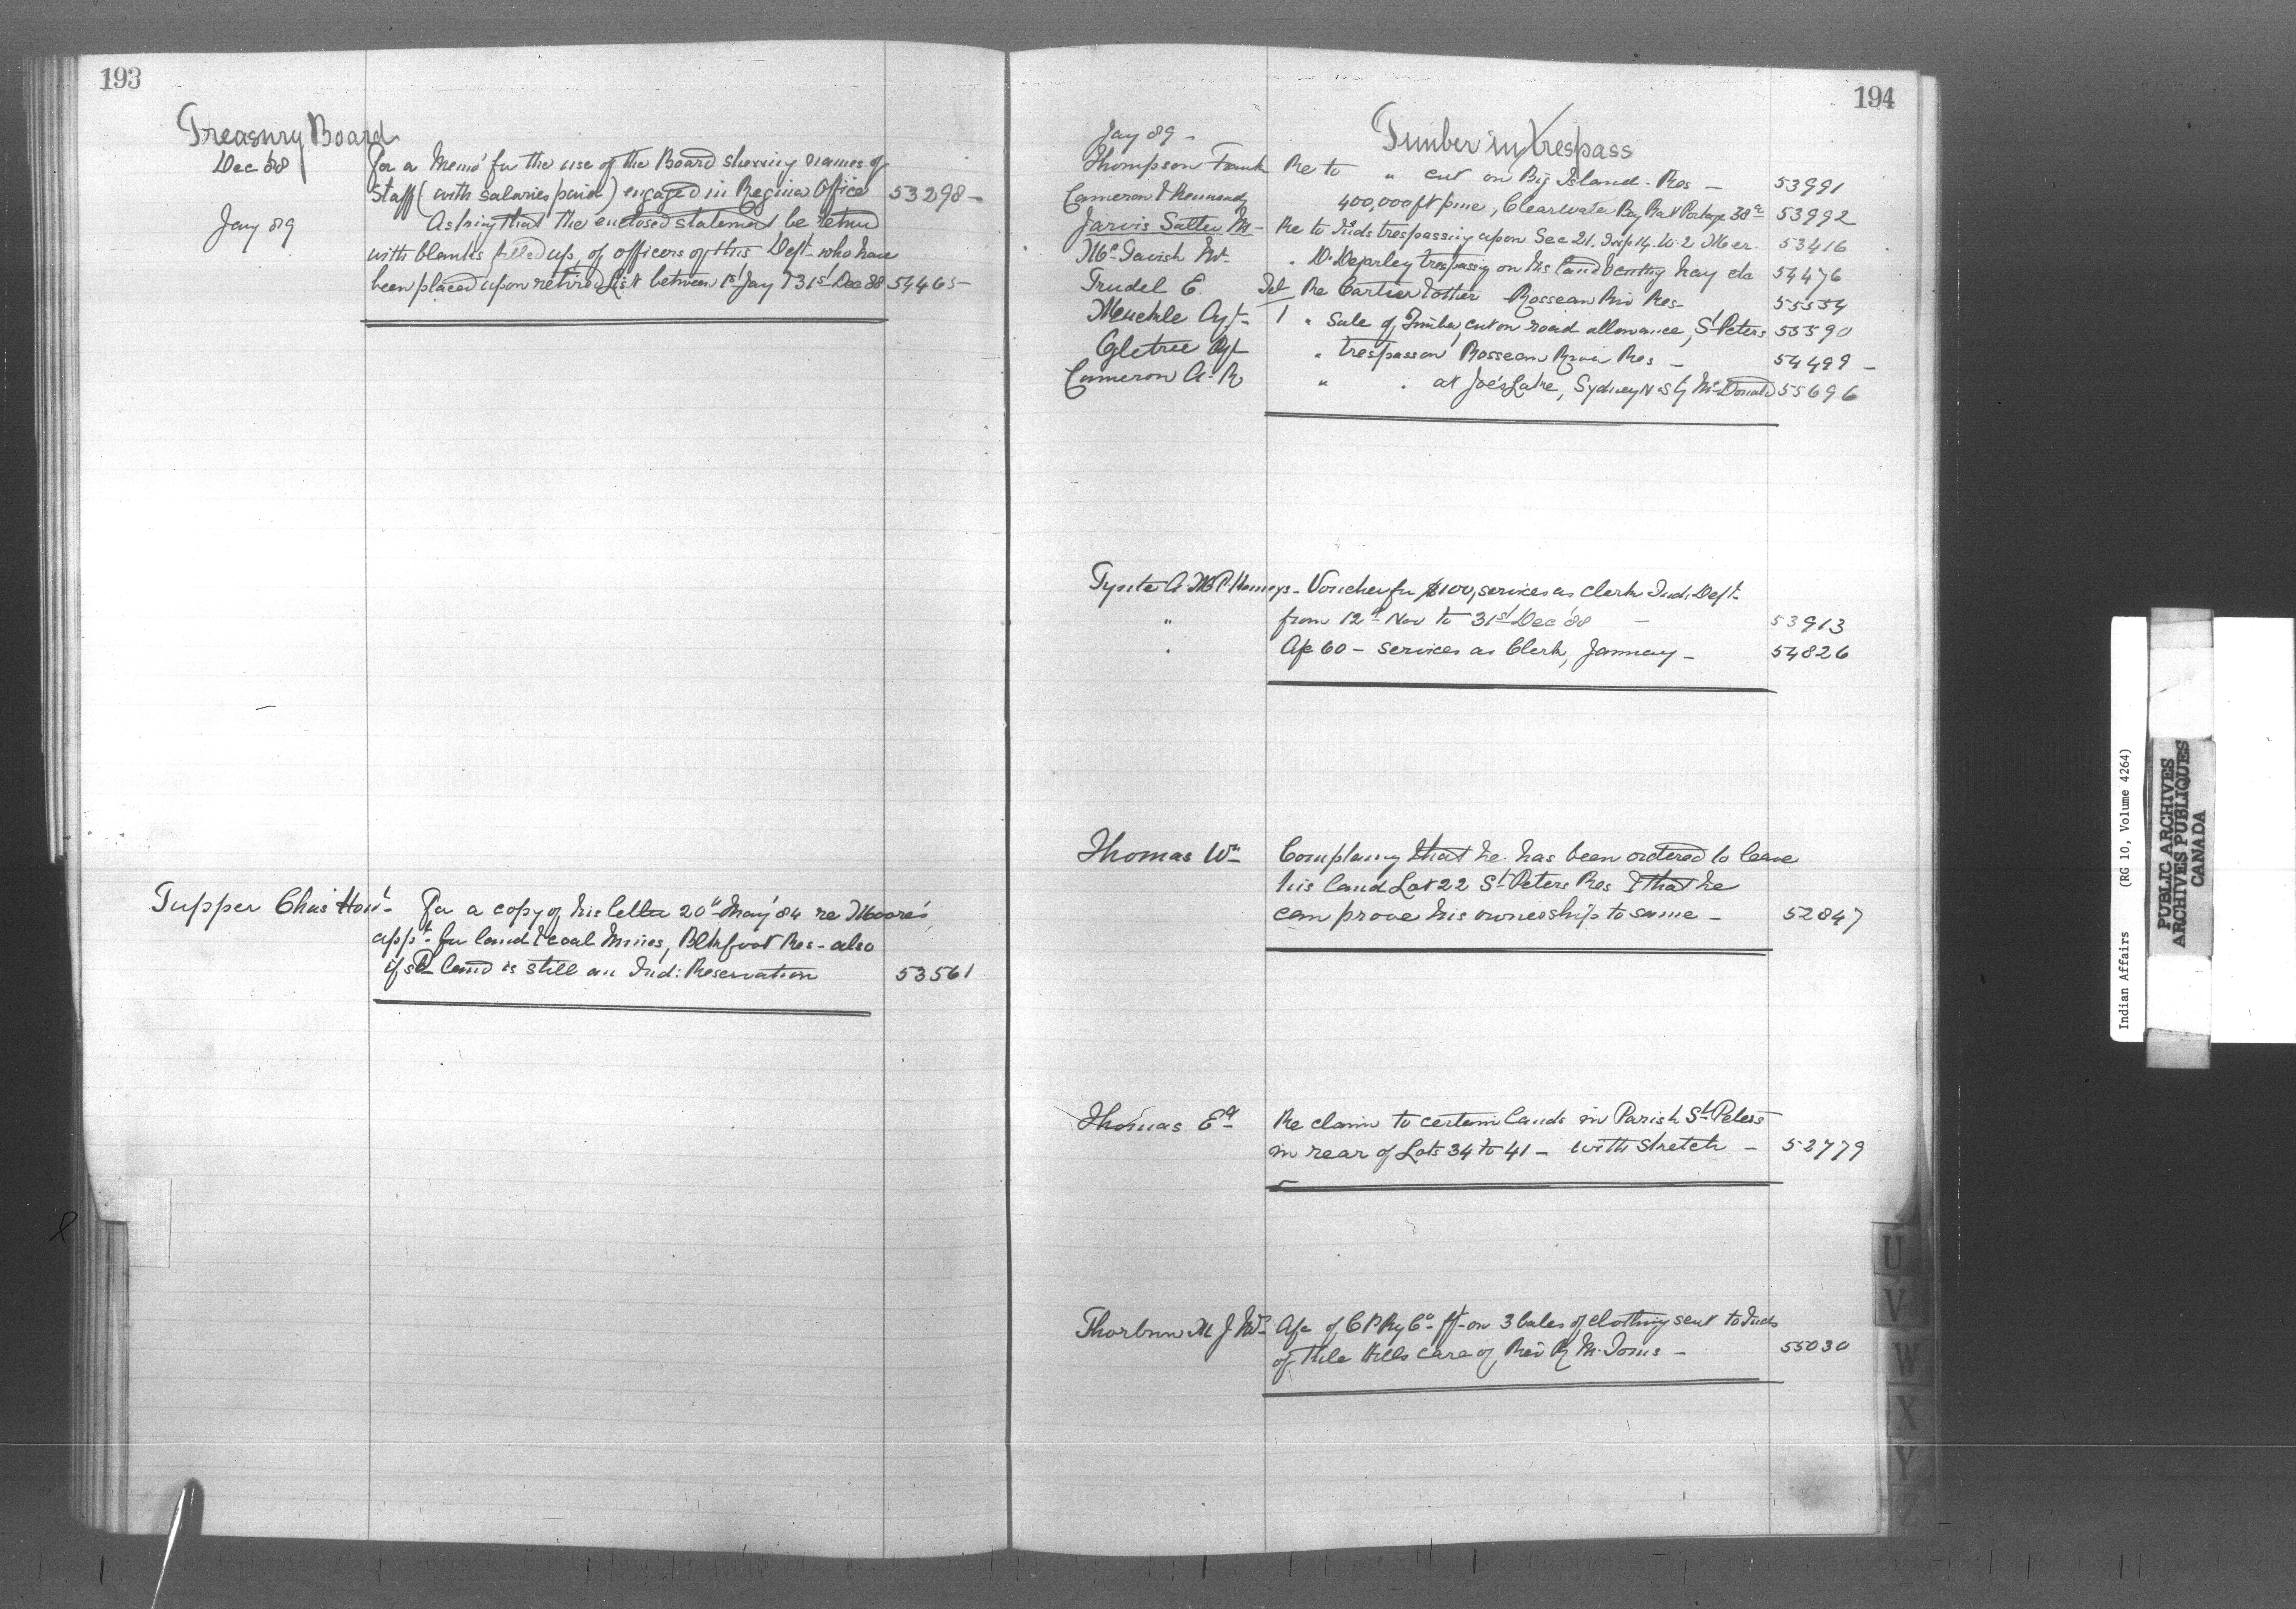 193
Treasury Board
Dec '88 For a Memo' for the use of the Board showing names of
Staff (with salaries paid) engaged in Regina Office 53298 -
Jany 89 Asking that the enclosed statement be retnd
with blanks filled up, of officers of this Dept. who have
been placed upon retired List between 1st Jany & 31st Dec 88 54465 -
Tupper Chas Hon'l - For a copy of his letter 20th May '84 re Moore's
appn. for land & coal Mines, Blkfoot Res - also
if sd land is still an Ind: Reservation 53561
194
Jany 89 - Timber in trespass
Thompson Frank Re to " cut on Big Island - Res - 53991
Cameron & Kennedy 400,000 ft pine, Clearwater Bay Rat Portage 38a 53992
Jarvis Salter M - Re to Inds trespassing upon Sec 21. Tsp 14. W. 2 Mer. 53416
McTavish Mr. " D. Deparley trespassing on his land & cutting hay etc 54476
Trudel E. Tel Re Cartier & other Rosseau Riv Res - 55554
Muckle Agt. 1 " Sale of Timber, cut on road allowance, St Peters 55590
Ogletree Agt " trespass on Rosseau River Res - 54499 -
Cameron A. R " " at Joe's Lake, Sydney N. S by McDonald 55696
Tynte A. M P. Kemeys - Voucher for $100, services as Clerk Ind: Dept.
" from 12th Nov to 31st Dec '88 - 53913
" A/c 60 - services as Clerk, January - 54826
Thomas Wm Complaing that he has been ordered to leave
his land Lot 22 St Peters Res & that he
can prove his ownership to same - 52847
Thomas Ed Re claim to certain lands in Parish St Peters
in rear of Lots 34 to 41 - with sketch - 52779
Thorburn M J Mrs A/c of C P Ry Co - frt - on 3 bales of clothing sent to Inds
of File Hills care of Rev R M. Toms - 55030
U
V
W
X
Y
Z
Indian Affairs (RG 10, Volume 4264)
PUBLIC ARCHIVES
ARCHIVES PUBLIQUES
CANADA